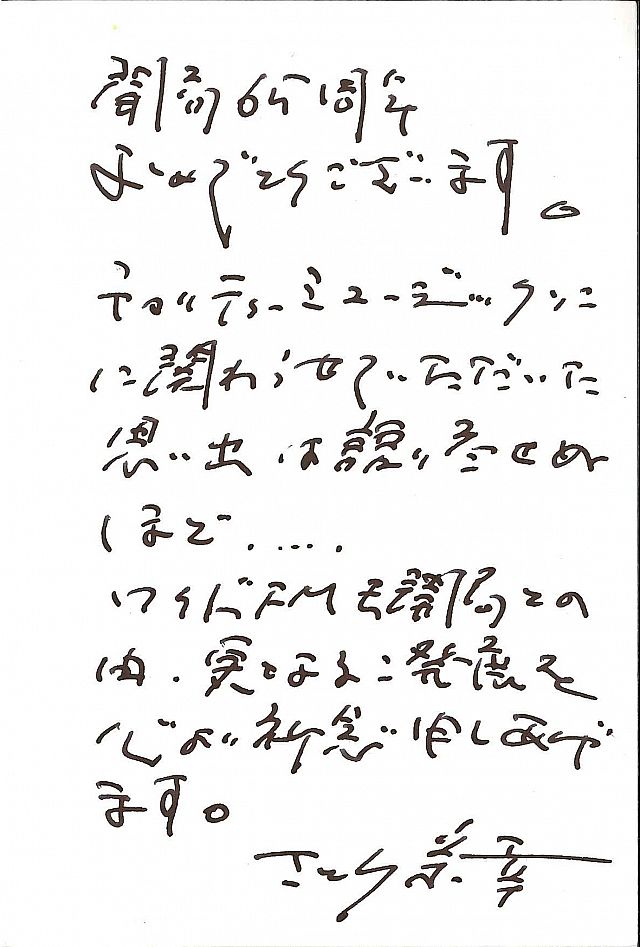 開局65周年
おめでとうございます。
チャリティーミュージックソン
に関わらせていただいた
思い出は語り尽せぬ
ほど.....
ワイドFMも開局との
由、更なるご発展を
心より祈念申しあげ
ます。
さとう宗幸